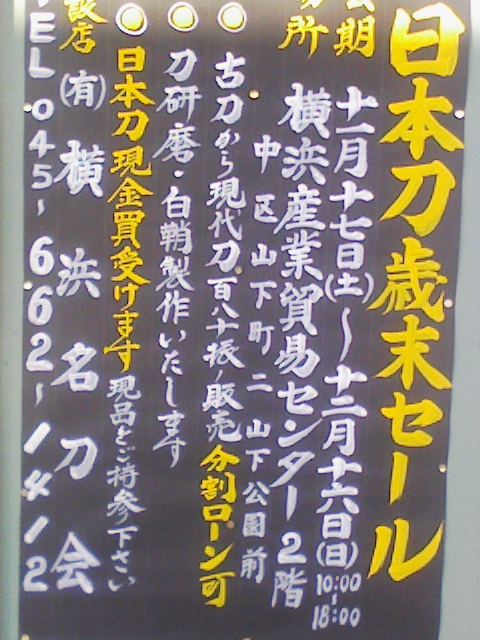 日本刀歳末セール
会期
十一月十七日(土)〜十二月十六日(日)10:00〜18:00
場所
横浜産業貿易センター2階
中区山下町二 山下公園前
◎古刀から現代刀百八十振ノ販売 分割ローン可
◎刀研磨・白鞘製作いたします
◎日本刀現金買受けます 現品をご持参下さい
設店 (有)横浜名刀会
TEL 045-662-1412